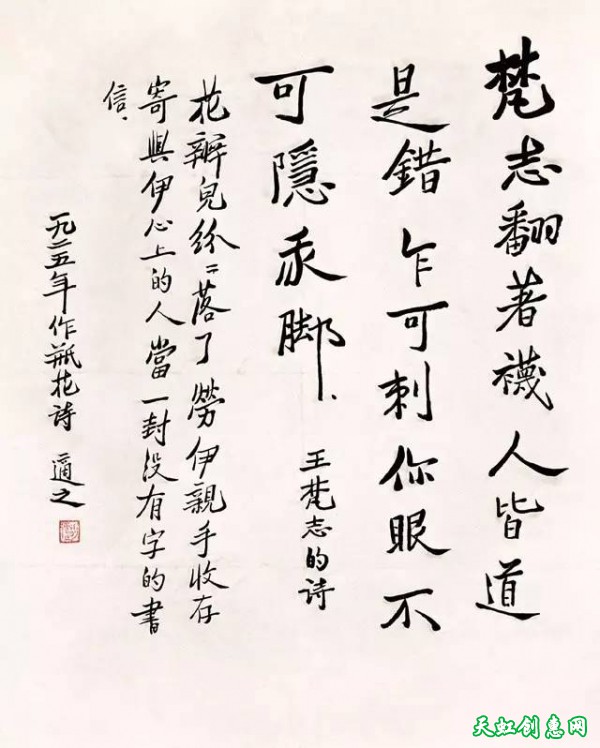 梵志翻著襪人皆道
是錯乍可刺你眼不
可隱我脚、
王梵志的詩
花瓣兒紛〻落了勞伊親手收存
寄與伊心上的人當一封没有字的書
信、
一九二五年作瓶花詩 適之
天虹创意网